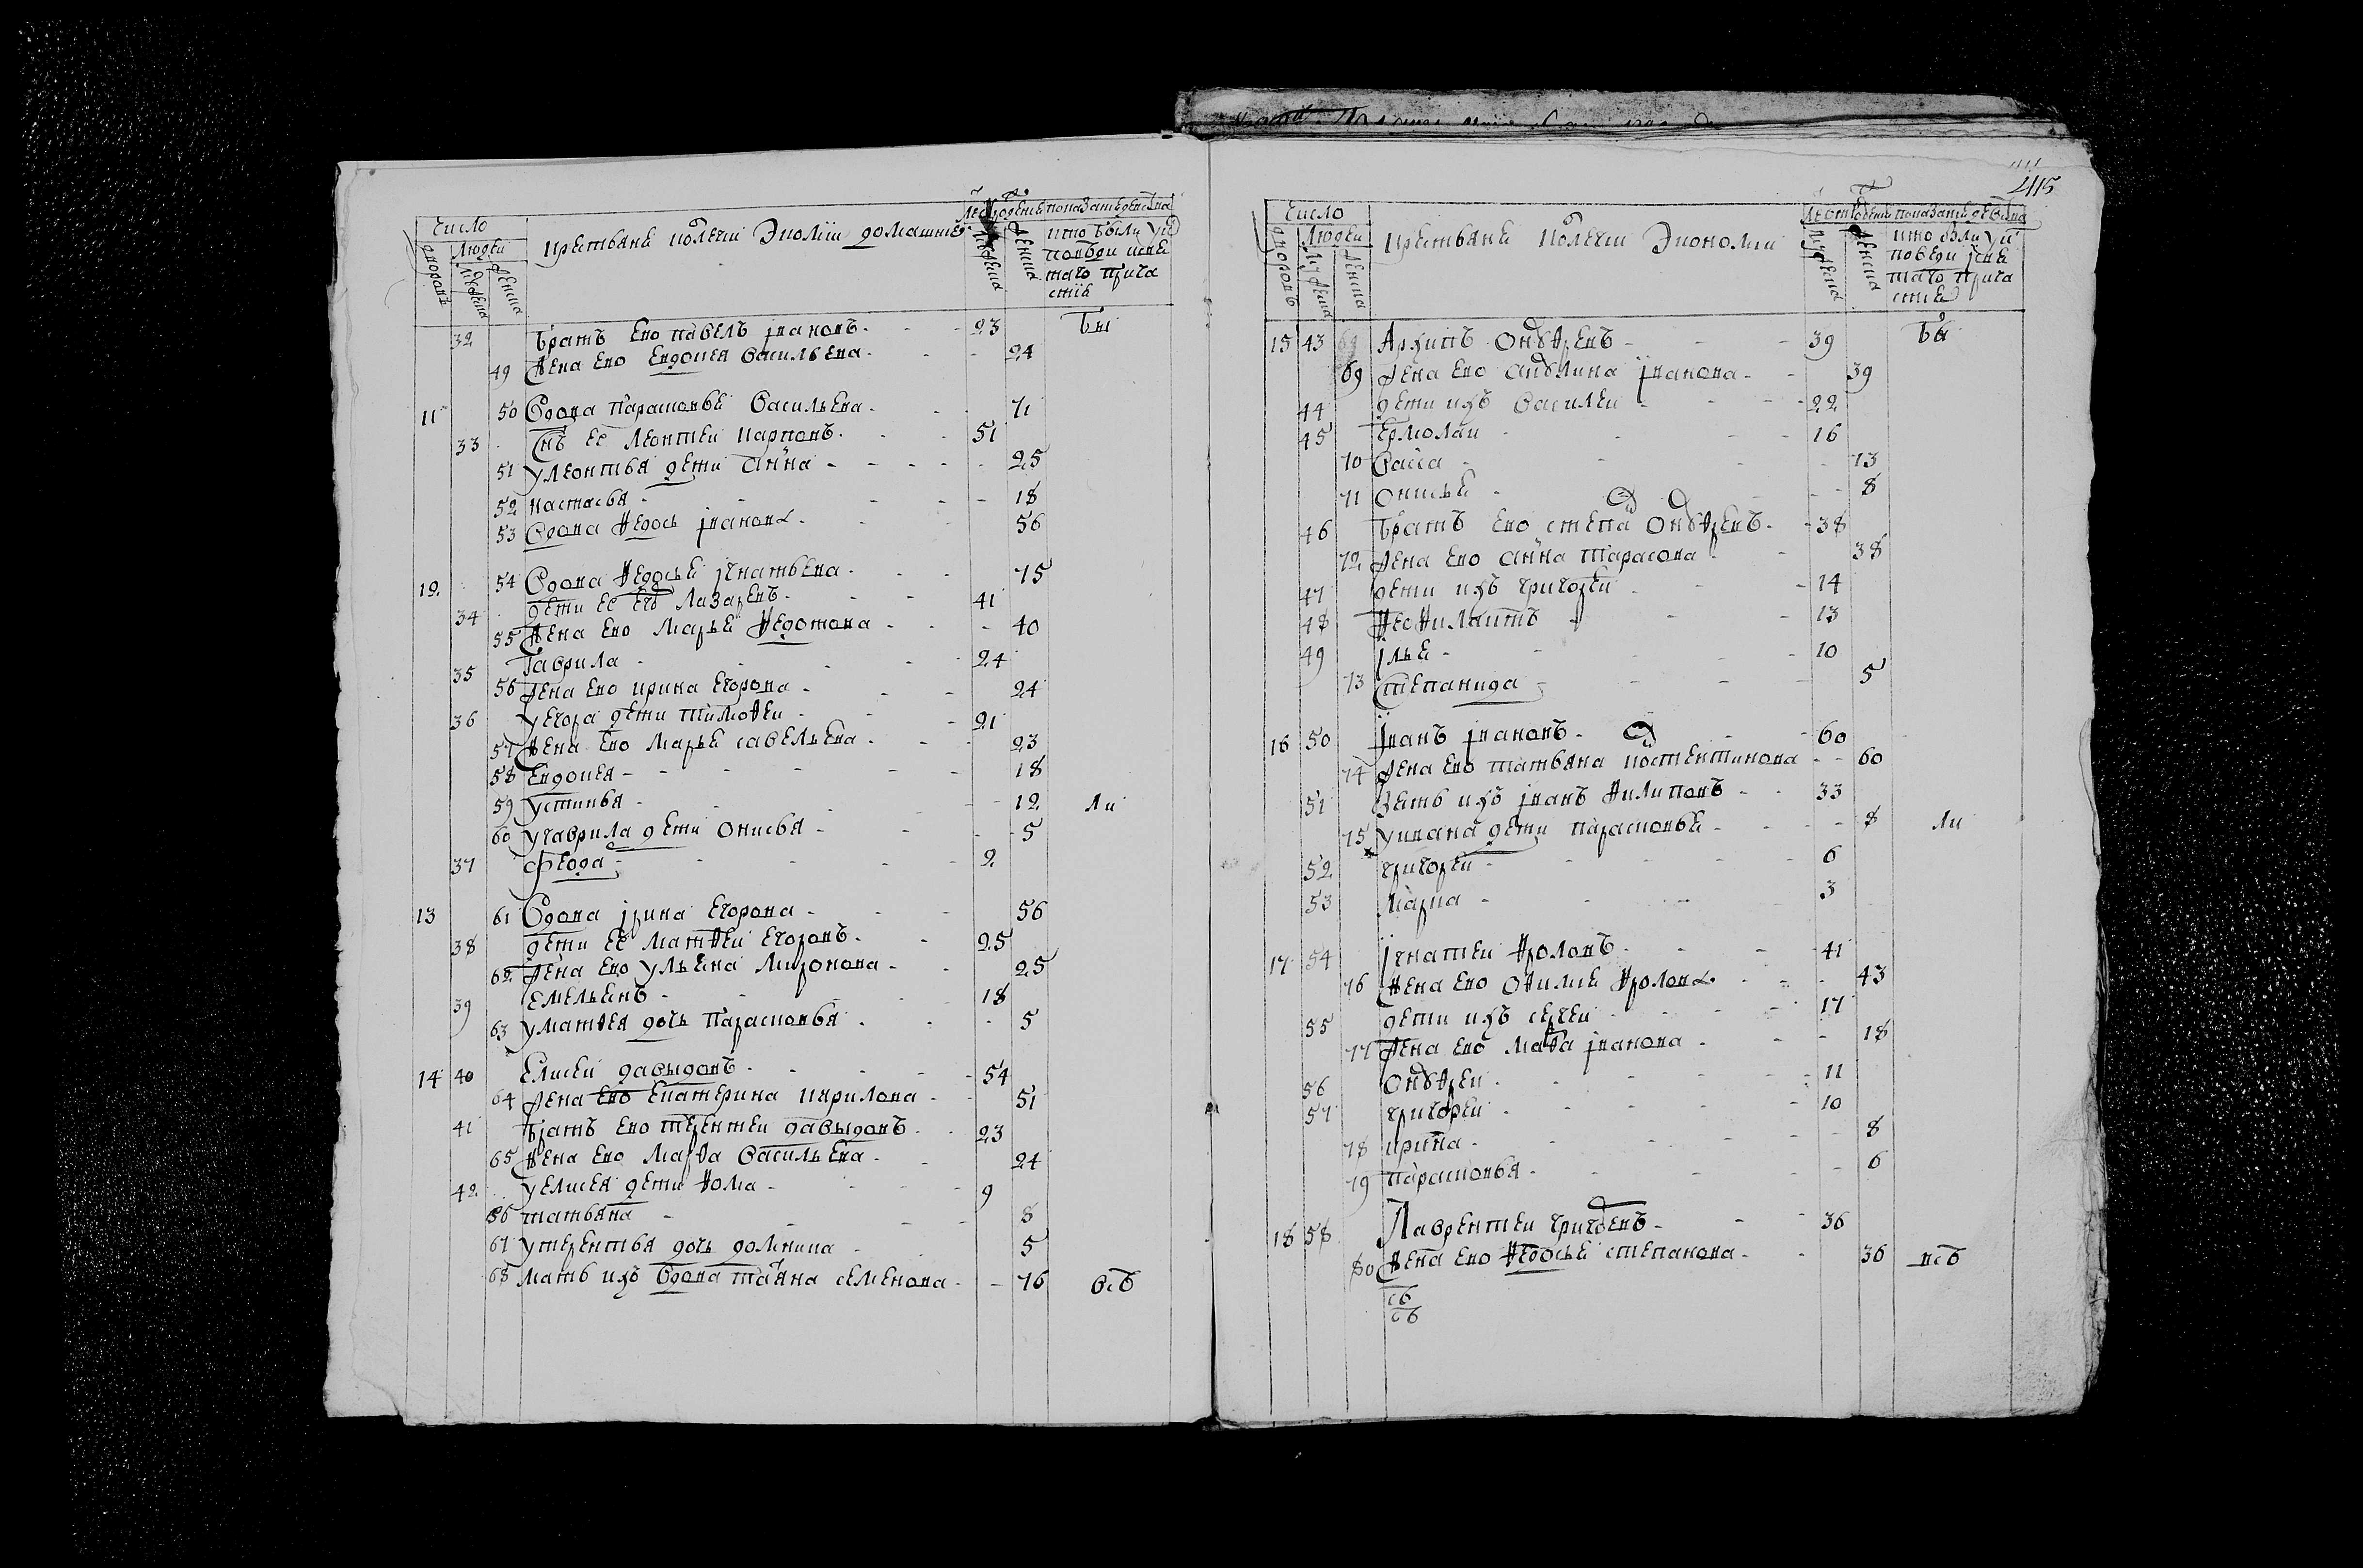 Число
Людей
дворовъ
мужеска
женска
крестьяне колегии Экономии и домашние
мужеска
женска
показание действа
кто были у исповеди и святаго причастия
32 братъ ево павелъ ивановъ 23 бы
49 жена ево евдокея васильева 24
11 50 вдова парасковья васильева 71
33 снъ ее леонтеи карповъ 51
51 у леонтья дети анна 25
52 настасья 18
53 вдова федосья иванова 56
12 54 вдова федосья игнатьева 75
34 дети ее егоръ лазаревъ 41
55 жена ево марья федотова 40
35 гаврила 24
56 жена ево ирина егорова 24
36 у егора дети тимофеи 21
57 жена ево марья савельева 23
58 евдокея 18
59 устинья 12 ли
60 у гаврила дети онисья 5
37 федоръ 2
13 61 вдова ирина егорова 56
38 дети ее матфеи егоровъ 25
62 жена ево ульяна миронова 25
39 емельянъ 18
63 у матфея дочь парасковья 5
14 40 елисеи давыдовъ 54
64 жена ево екатерина кирилова 51
41 братъ ево терентеи давыдовъ 23
65 жена ево марфа васильева 24
42 у елисея дети фома 9
66 татьяна 8
67 у терентья дочь домникиа 5
68 мать ихъ вдова татяна семенова 76 всѣ
415
Число
Людей
дворовъ
мужеска
женска
крестьяне колегии Экономии
мужеска
женска
показание действа
кто были у исповеди и святаго причастия
15 43 Архипъ ондреевъ 39 бы
69 жена ево акулина иванова 39
44 дети ихъ василеи 22
45 ермолаи 16
70 васса 13
71 онисья 8
46 братъ ево степанъ ондреевъ 38
72 жена ево анна тарасова 38
47 дети ихъ григореи 14
48 феофилактъ 13
49 илья 10
73 степанида 5
16 50 иванъ ивановъ 60
74 жена ево татьяна костентинова 60
51 зять ихъ иванъ филиповъ 33
75 у ивана дети парасковья 8 ли
52 григореи 6
53 марка 3
17 54 игнатеи фроловъ 41
76 жена ево офимья фролова 43
55 дети ихъ сергеи 17
77 жена ево марфа иванова 18
56 ондреи 11
57 григореи 10
78 ирина 8
79 парасковья 6
18 58 Лаврентеи григоревъ 36
80 жена ево федосья степанова 36 всѣ